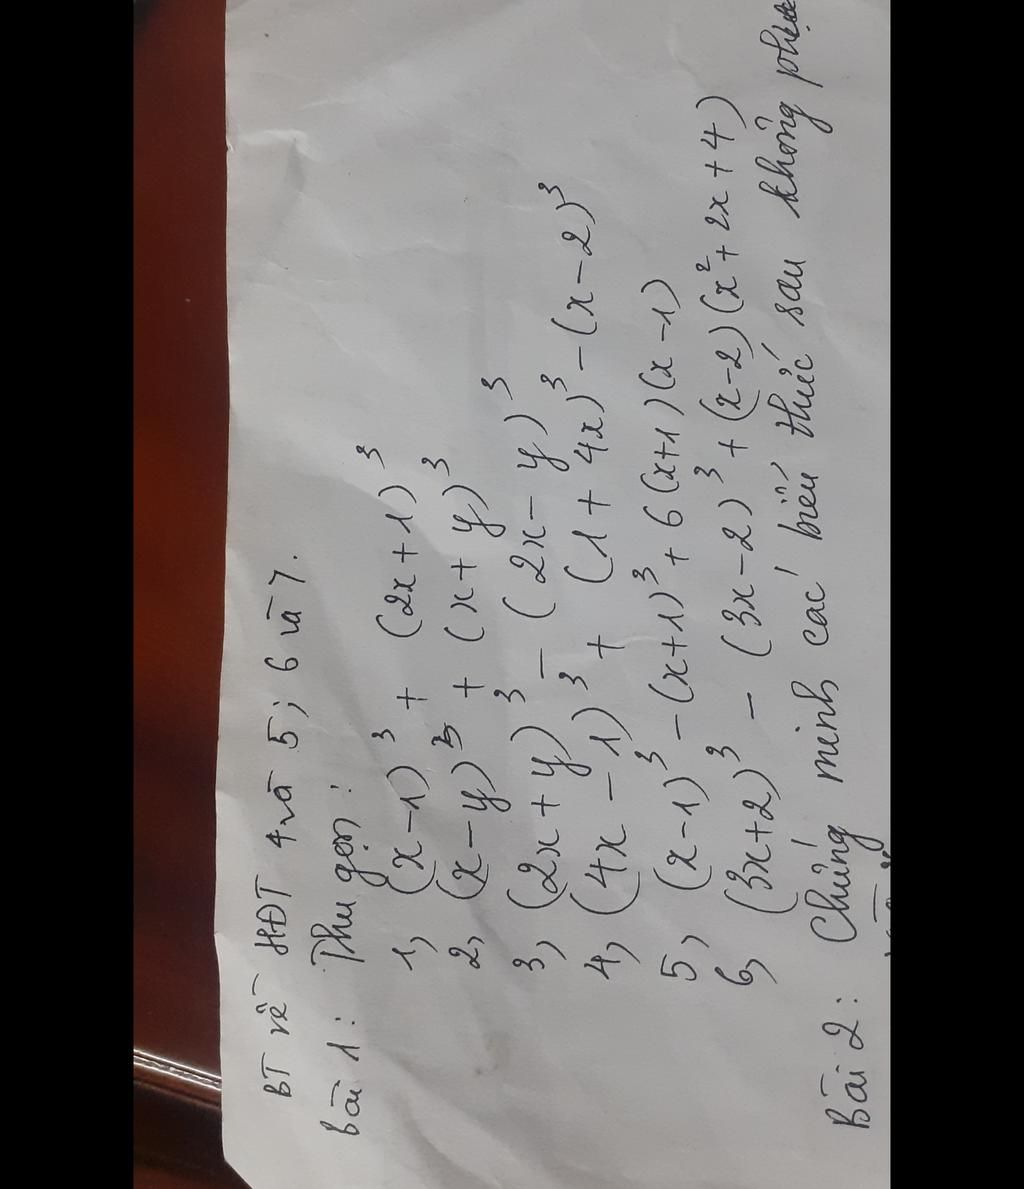 BT về HĐT 4 và 5; 6 và 7.
Bài 1: Thu gọn:
1, (x-1)³ + (2x+1)³
2, (x-y)³ + (x+y)³
3, (2x+y)³ - (2x-y)³
4, (4x-1)³ + (1+4x)³ - (x-2)³
5, (x-1)³ - (x+1)³ + 6(x+1)(x-1)
6, (3x+2)³ - (3x-2)³ + (x-2)(x²+2x+4)
Bài 2: Chứng minh các biểu thức sau không